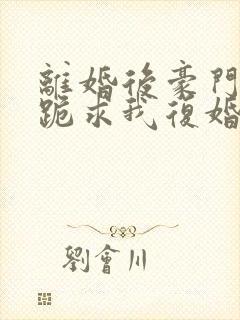 離婚後豪門
跪求我復婚
劉會川